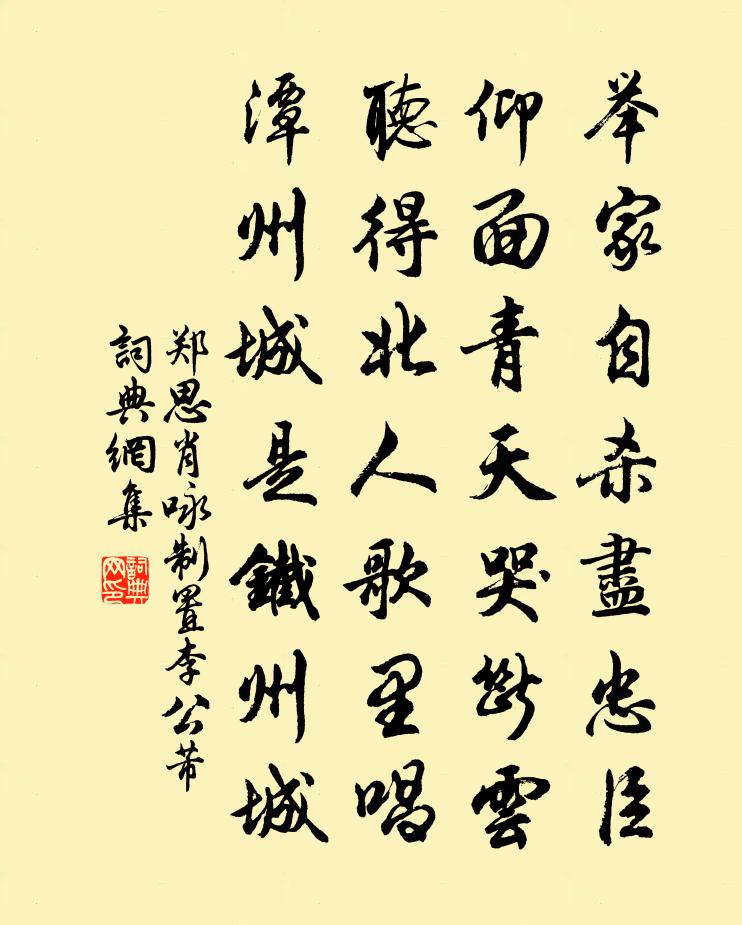 举家自杀盡忠臣
仰面青天哭斷雲
聽得北人歌里唱
潭州城是鐵州城
郑思肖咏制置李公芾
詞典網集
詞典網印